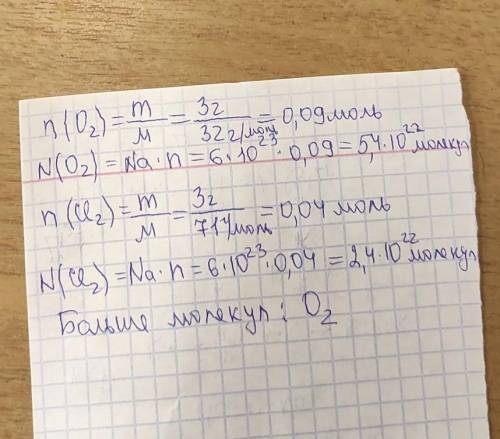 n(O₂) = m/M = 3г/32г/моль = 0,09моль
N(O₂) = Na·n = 6·10²³·0,09 = 5,4·10²² молекул
n(Cl₂) = m/M = 3г/71г/моль = 0,04 моль
N(Cl₂) = Na·n = 6·10²³·0,04 = 2,4·10²² молекул
Больше молекул: O₂